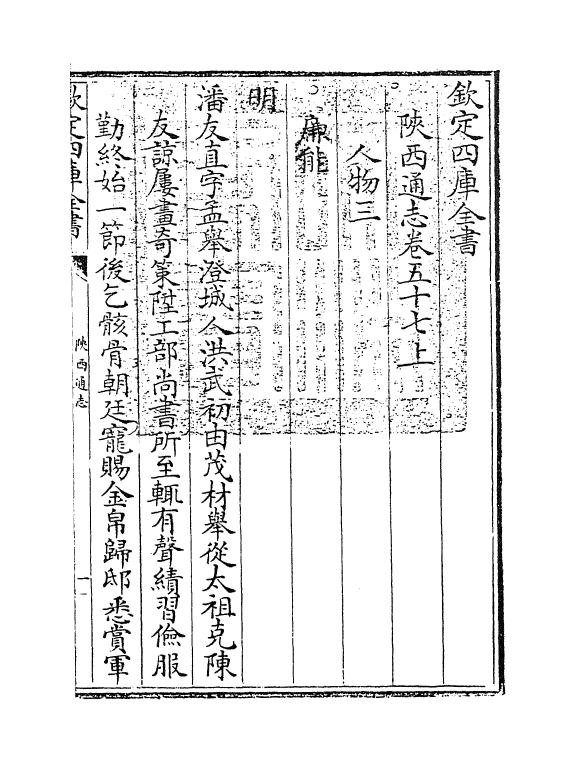 欽定四庫全書
陜西通志卷五十七上
人物三
廉能
明
潘友直字孟舉澄城人洪武初由茂材舉從太祖克陳
友諒屢畫奇策陞工部尚書所至輒有聲績習儉服
勤終始一節後乞骸骨朝廷寵賜金帛歸邸悉賞軍
欽定四庫全書
陜西通志
一